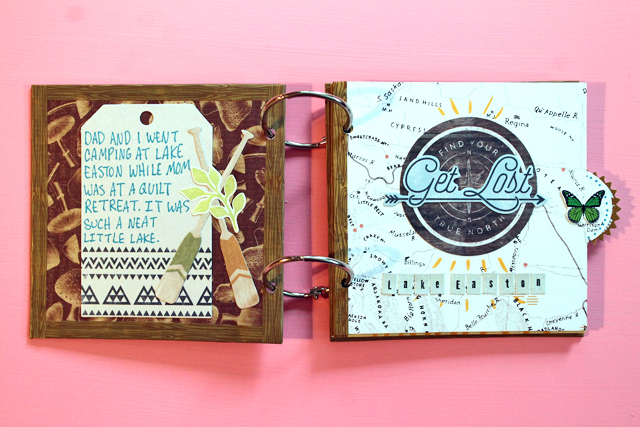 DAD AND I WENT
CAMPING AT LAKE
EASTON WHILE MOM
WAS AT A QUILT
RETREAT. IT WAS
SUCH A NEAT
LITTLE LAKE.
SAND HILLS
Qu'Appelle R
Regina
CYPRESS
FIND YOUR
Get Lost
TRUE NORTH
Billings
Lake Easton
Sheridan
Cheyenne R